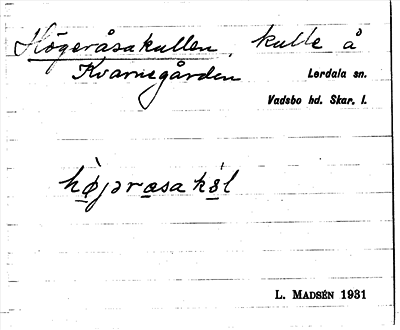 Högeråsakullen, kulle å
Kvarnegården
Lerdala sn.
Vadsbo hd. Skar. l.
L. MADSÉN 1931